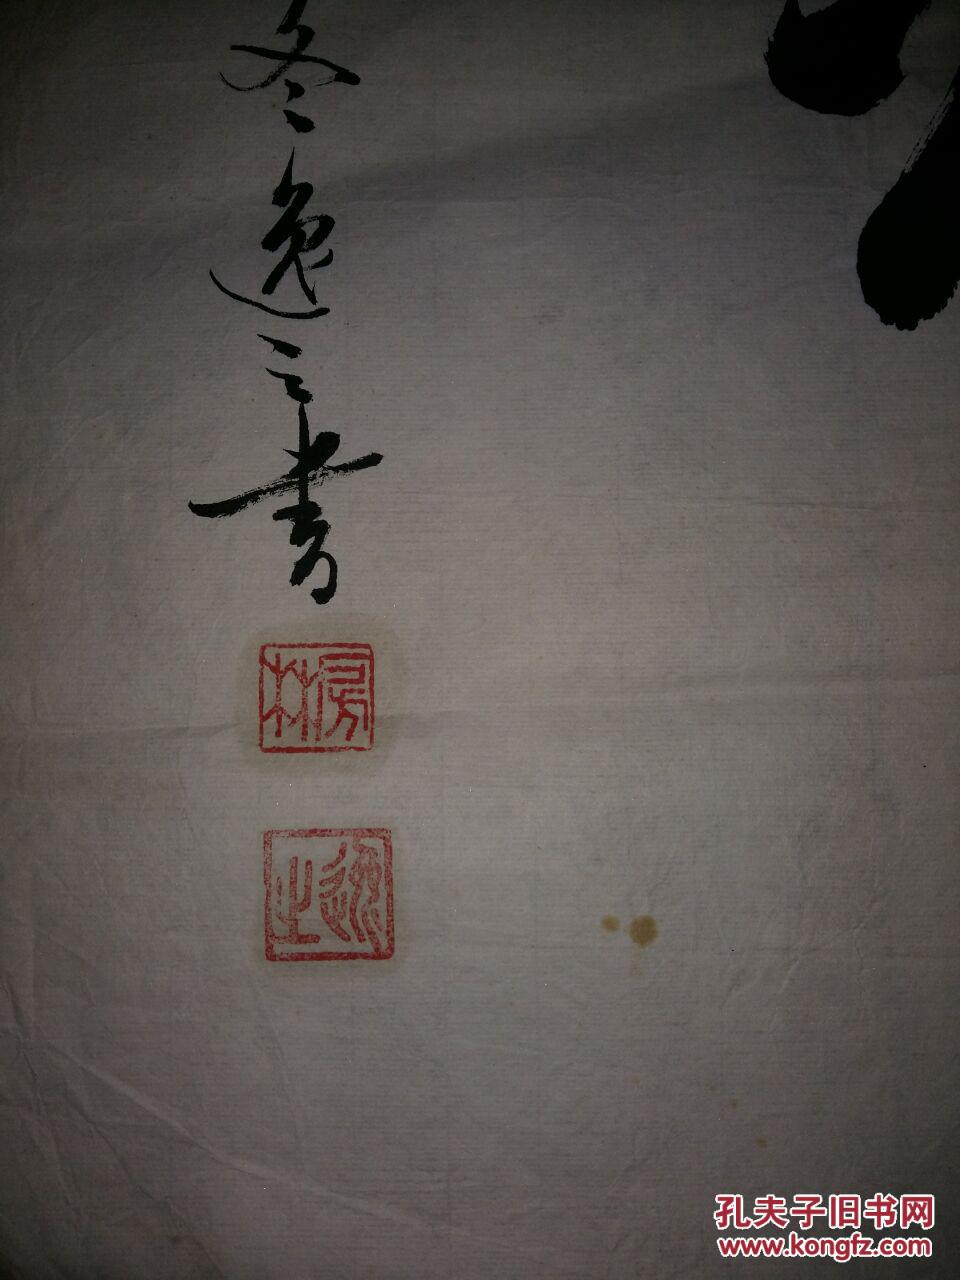 冬逸之書
房林
逸之
孔夫子旧书网
www.kongfz.com